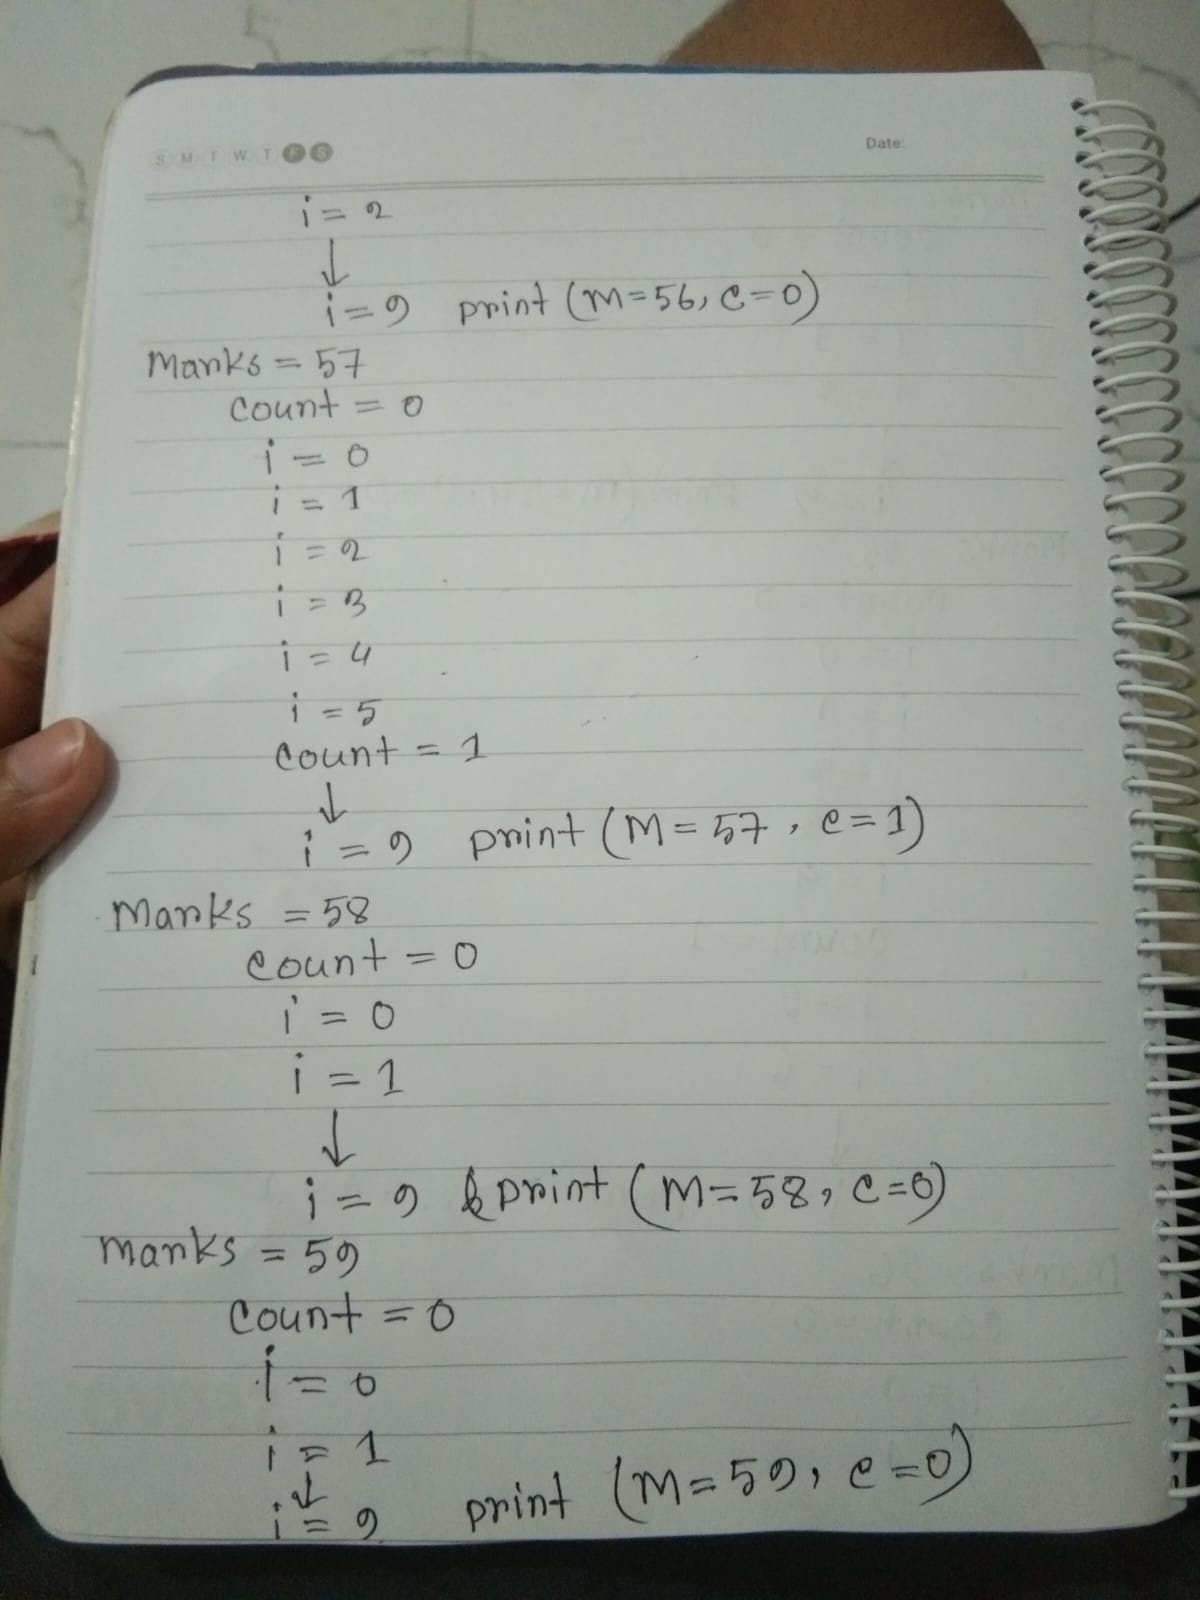 S M T W T F S Date:
i = 2
↓
i = 9 print (m=56, c=0)
Marks = 57
count = 0
i = 0
i = 1
i = 2
i = 3
i = 4
i = 5
count = 1
↓
i = 9 print (M = 57, c = 1)
Marks = 58
count = 0
i = 0
i = 1
↓
i = 9 print (M=58, c=0)
Marks = 59
count = 0
i = 0
i = 1
↓
i = 9 print (M=59, c=0)